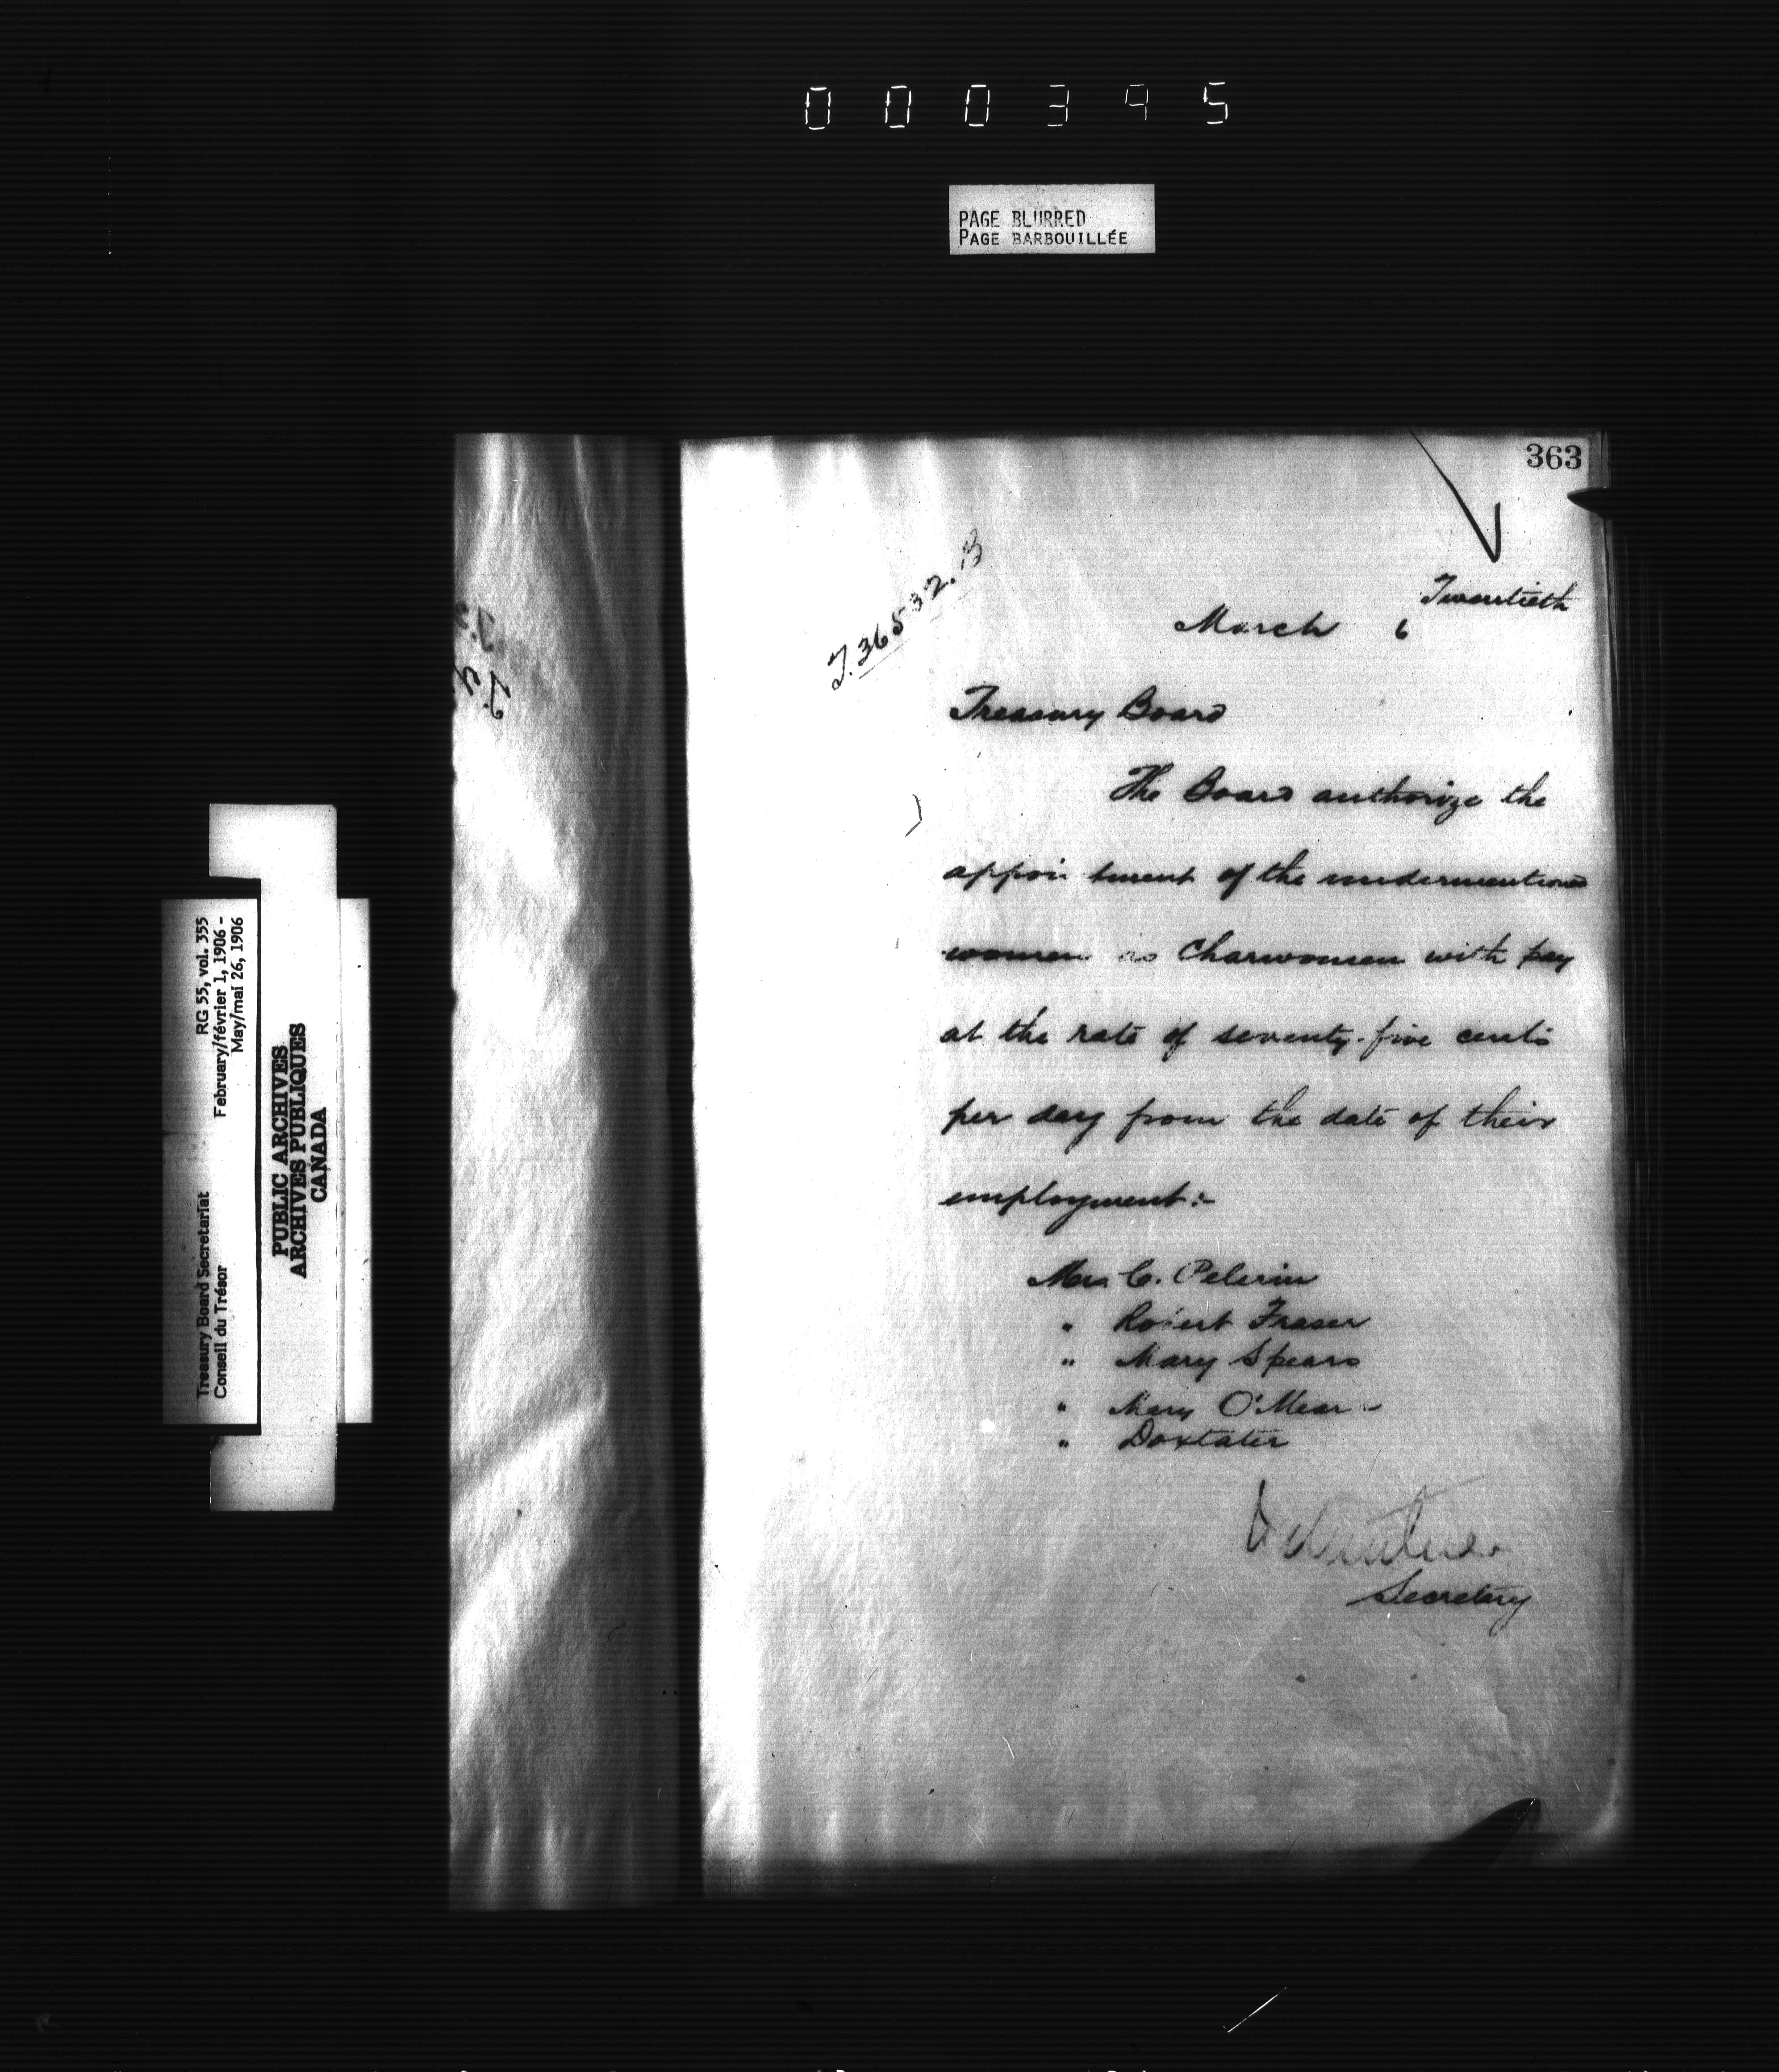 000395
PAGE BLURRED
PAGE BARBOUILLÉE
363
T. 36532. B
Twentieth
March 6
Treasury Board
The Board authorize the
appointment of the undermentioned
women as Charwomen with pay
at the rate of seventy-five cents
per day from the date of their
employment:-
Mrs. C. Pelerin
" Robert Fraser
" Mary Spears
" Mary O'Meara
" Doxtater
Secretary
Treasury Board Secretariat RG 55, vol. 355
Conseil du Trésor February/février 1, 1906 -
May/mai 26, 1906
PUBLIC ARCHIVES
ARCHIVES PUBLIQUES
CANADA